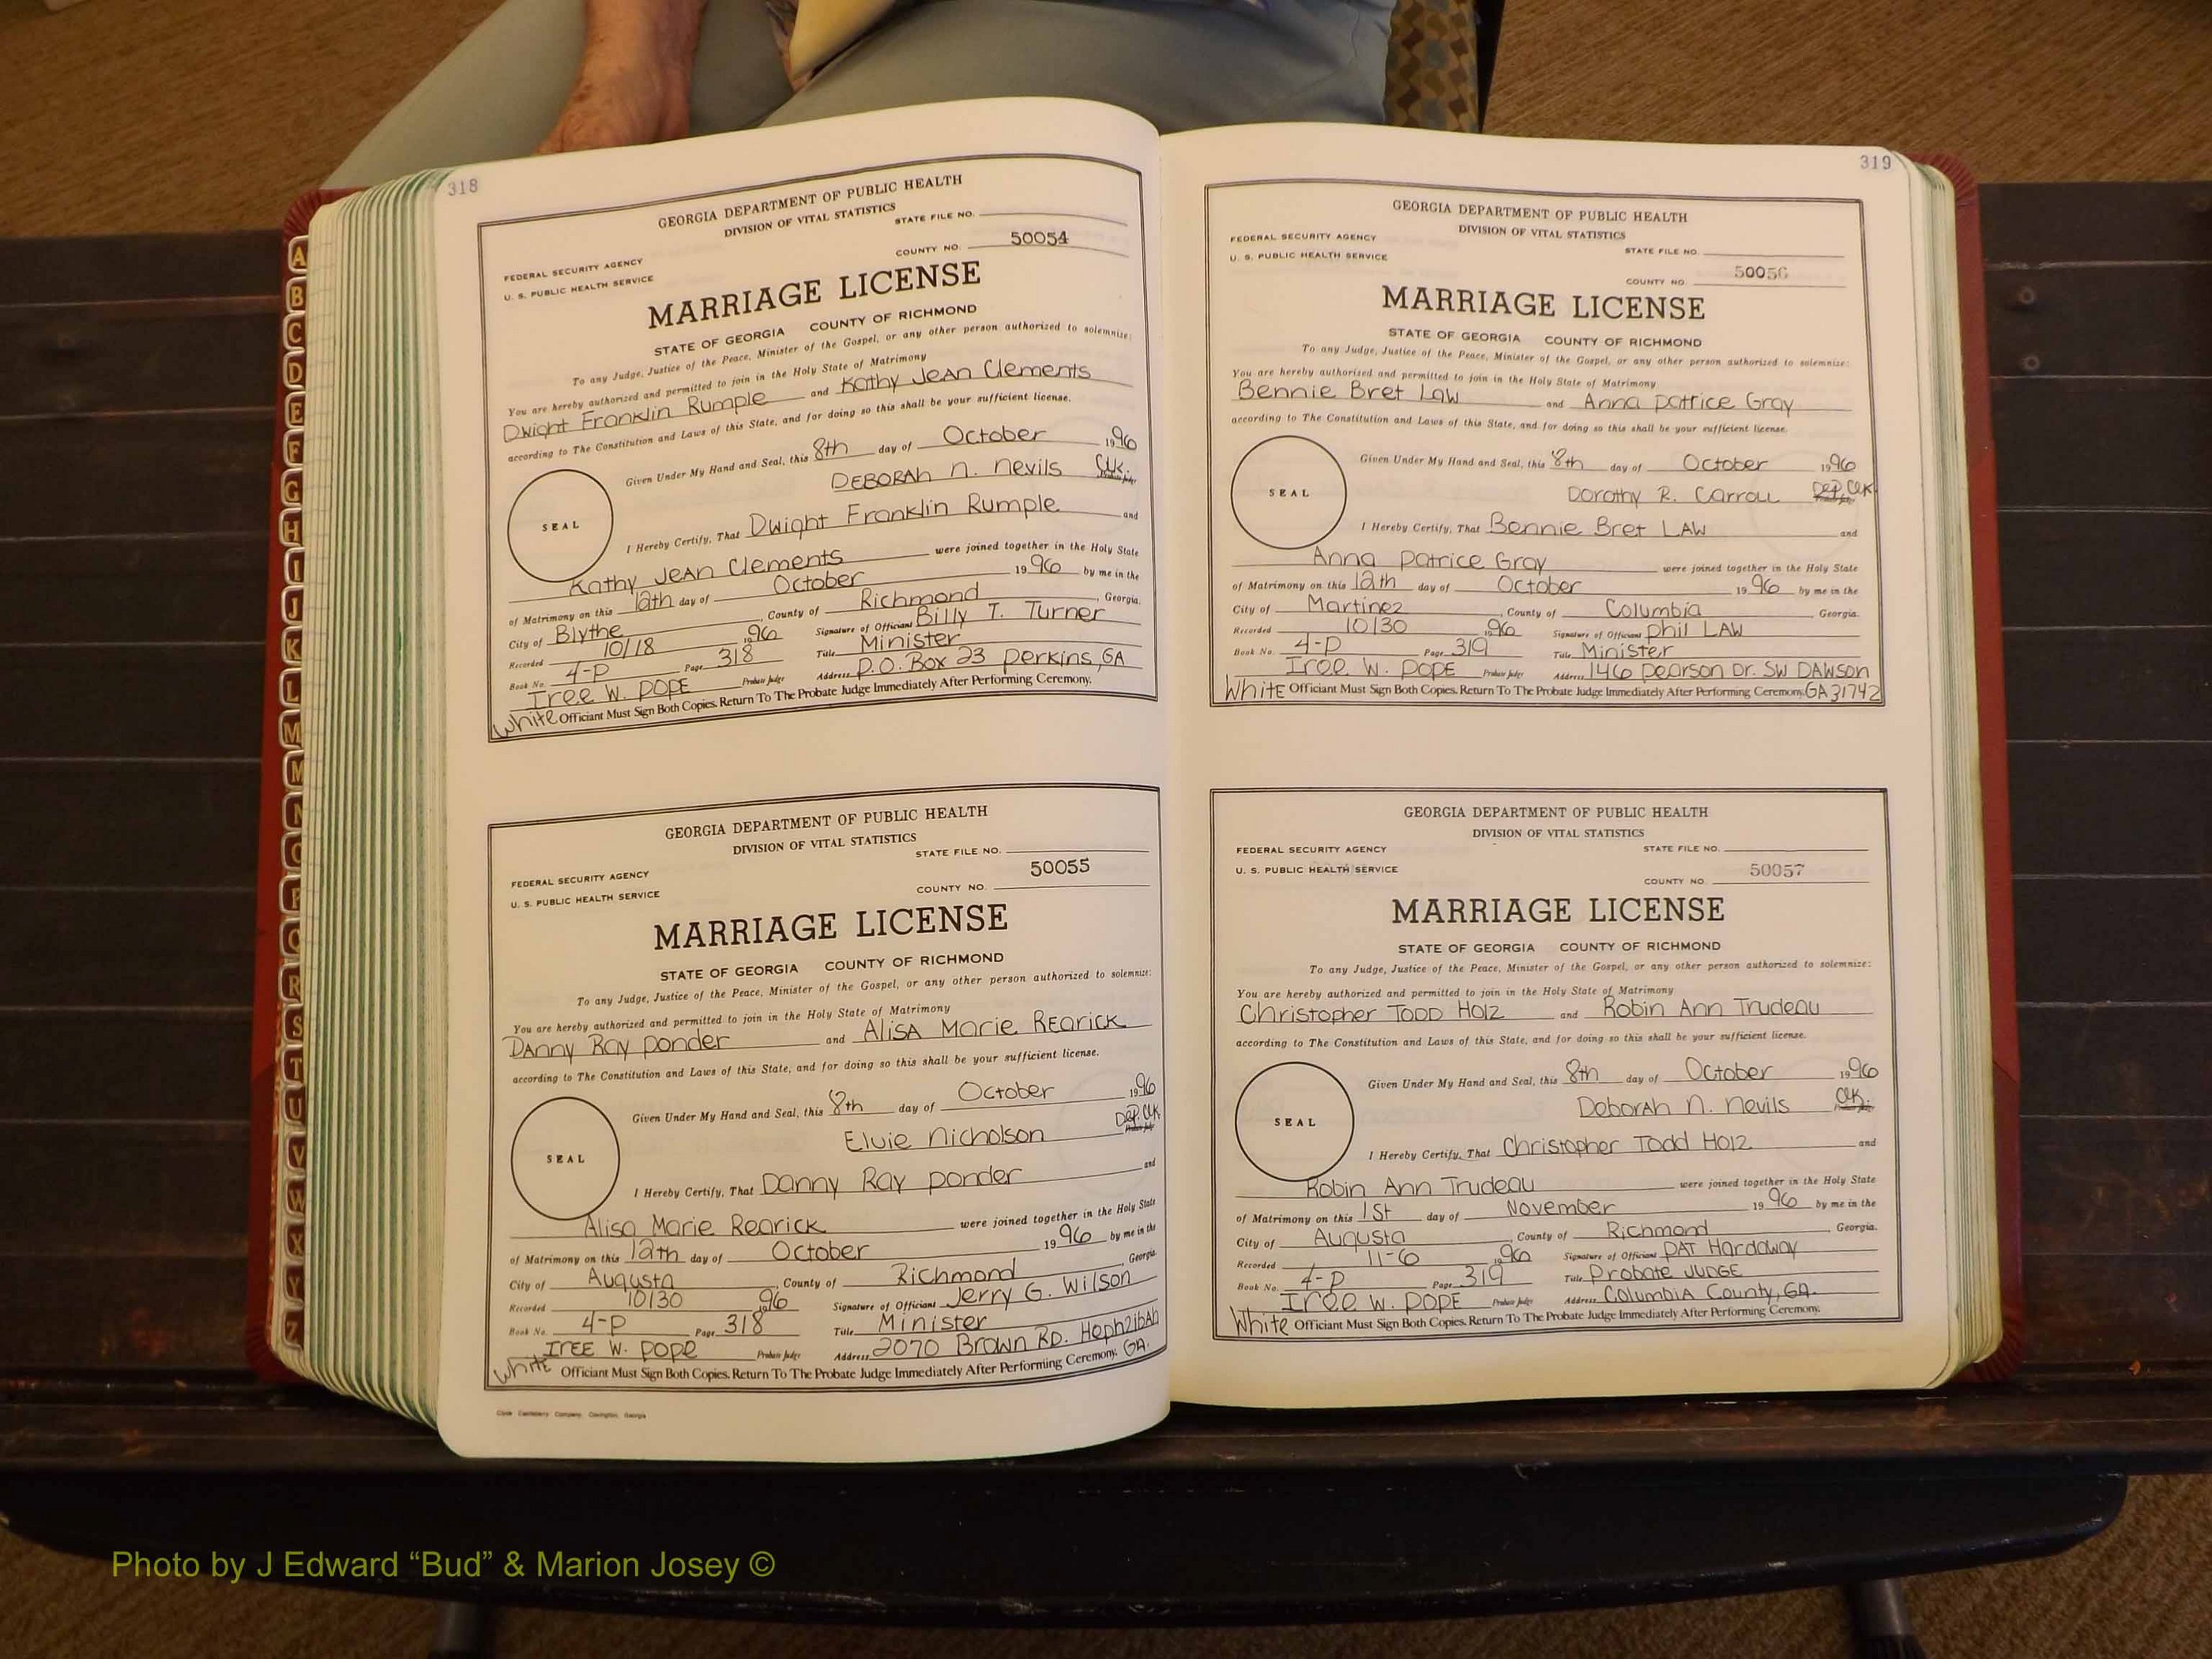 318
GEORGIA DEPARTMENT OF PUBLIC HEALTH
DIVISION OF VITAL STATISTICS
STATE FILE NO.
COUNTY NO. 50054
FEDERAL SECURITY AGENCY
U. S. PUBLIC HEALTH SERVICE
MARRIAGE LICENSE
STATE OF GEORGIA COUNTY OF RICHMOND
To any Judge, Justice of the Peace, Minister of the Gospel, or any other person authorized to solemnize:
You are hereby authorized and permitted to join in the Holy State of Matrimony
Dwight Franklin Rumple and Kathy Jean Clements
according to The Constitution and Laws of this State, and for doing so this shall be your sufficient license.
Given Under My Hand and Seal, this 8th day of October 1996
DEBORAH N. Nevils Clk.
SEAL
I Hereby Certify, That Dwight Franklin Rumple and
Kathy Jean Clements were joined together in the Holy State
of Matrimony on this 12th day of October 1996 by me in the
City of Blythe, County of Richmond, Georgia.
Recorded 10/18 1996 Signature of Officiant Billy T. Turner
Book No. 4-P Page 318 Title Minister
Iree W. Pope Probate Judge Address P.O. Box 23 Perkins, GA
White Officiant Must Sign Both Copies. Return To The Probate Judge Immediately After Performing Ceremony.
GEORGIA DEPARTMENT OF PUBLIC HEALTH
DIVISION OF VITAL STATISTICS
STATE FILE NO.
FEDERAL SECURITY AGENCY
COUNTY NO. 50055
U. S. PUBLIC HEALTH SERVICE
MARRIAGE LICENSE
STATE OF GEORGIA COUNTY OF RICHMOND
To any Judge, Justice of the Peace, Minister of the Gospel, or any other person authorized to solemnize:
You are hereby authorized and permitted to join in the Holy State of Matrimony
Danny Ray Ponder and Alisa Marie Rearick
according to The Constitution and Laws of this State, and for doing so this shall be your sufficient license.
Given Under My Hand and Seal, this 8th day of October 1996
Elvie Nicholson Dep. Clk
SEAL
I Hereby Certify, That Danny Ray Ponder and
Alisa Marie Rearick were joined together in the Holy State
of Matrimony on this 12th day of October 1996 by me in the
City of Augusta, County of Richmond, Georgia.
Recorded 10/30 1996 Signature of Officiant Jerry G. Wilson
Book No. 4-P Page 318 Title Minister
Iree W. Pope Probate Judge Address 2070 Brown Rd. Hephzibah
White Officiant Must Sign Both Copies. Return To The Probate Judge Immediately After Performing Ceremony. GA.
319
GEORGIA DEPARTMENT OF PUBLIC HEALTH
DIVISION OF VITAL STATISTICS
FEDERAL SECURITY AGENCY
STATE FILE NO.
U. S. PUBLIC HEALTH SERVICE
COUNTY NO. 50056
MARRIAGE LICENSE
STATE OF GEORGIA COUNTY OF RICHMOND
To any Judge, Justice of the Peace, Minister of the Gospel, or any other person authorized to solemnize:
You are hereby authorized and permitted to join in the Holy State of Matrimony
Bennie Bret Law and Anna Patrice Gray
according to The Constitution and Laws of this State, and for doing so this shall be your sufficient license.
Given Under My Hand and Seal, this 8th day of October 1996
Dorothy R. Carroll Dep. Clk
SEAL
I Hereby Certify, That Bennie Bret Law and
Anna Patrice Gray were joined together in the Holy State
of Matrimony on this 12th day of October 1996 by me in the
City of Martinez, County of Columbia, Georgia.
Recorded 10/30 1996 Signature of Officiant Phil Law
Book No. 4-P Page 319 Title Minister
Iree W. Pope Probate Judge Address 146 Pearson Dr. SW Dawson
White Officiant Must Sign Both Copies. Return To The Probate Judge Immediately After Performing Ceremony. GA 31742
GEORGIA DEPARTMENT OF PUBLIC HEALTH
DIVISION OF VITAL STATISTICS
FEDERAL SECURITY AGENCY
STATE FILE NO.
U. S. PUBLIC HEALTH SERVICE
COUNTY NO. 50057
MARRIAGE LICENSE
STATE OF GEORGIA COUNTY OF RICHMOND
To any Judge, Justice of the Peace, Minister of the Gospel, or any other person authorized to solemnize:
You are hereby authorized and permitted to join in the Holy State of Matrimony
Christopher Todd Holz and Robin Ann Trudeau
according to The Constitution and Laws of this State, and for doing so this shall be your sufficient license.
Given Under My Hand and Seal, this 8th day of October 1996
Deborah N. Nevils Clk.
SEAL
I Hereby Certify, That Christopher Todd Holz and
Robin Ann Trudeau were joined together in the Holy State
of Matrimony on this 1st day of November 1996 by me in the
City of Augusta, County of Richmond, Georgia.
Recorded 11-6 1996 Signature of Officiant Pat Hardaway
Book No. 4-P Page 319 Title Probate Judge
Iree W. Pope Probate Judge Address Columbia County, GA.
White Officiant Must Sign Both Copies. Return To The Probate Judge Immediately After Performing Ceremony.
A
B
C
D
E
F
G
H
I
J
K
L
M
Mc
N
O
P
Q
R
S
T
U
V
W
X
Y
Z
Photo by J Edward “Bud” & Marion Josey ©